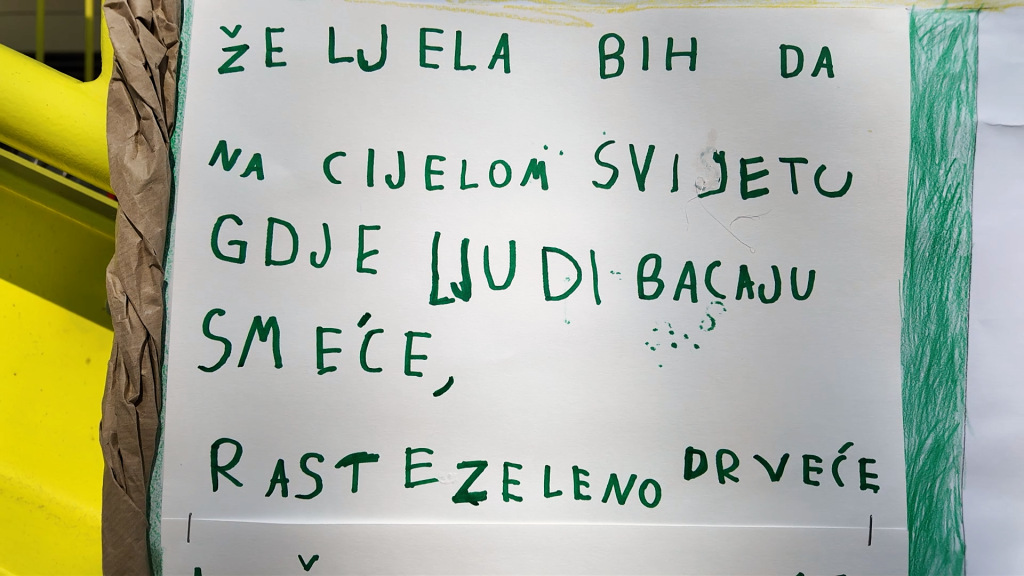 ŽELJELA BIH DA
NA CIJELOM SVIJETU
GDJE LJUDI BACAJU
SMEĆE,
RASTE ZELENO DRVEĆE